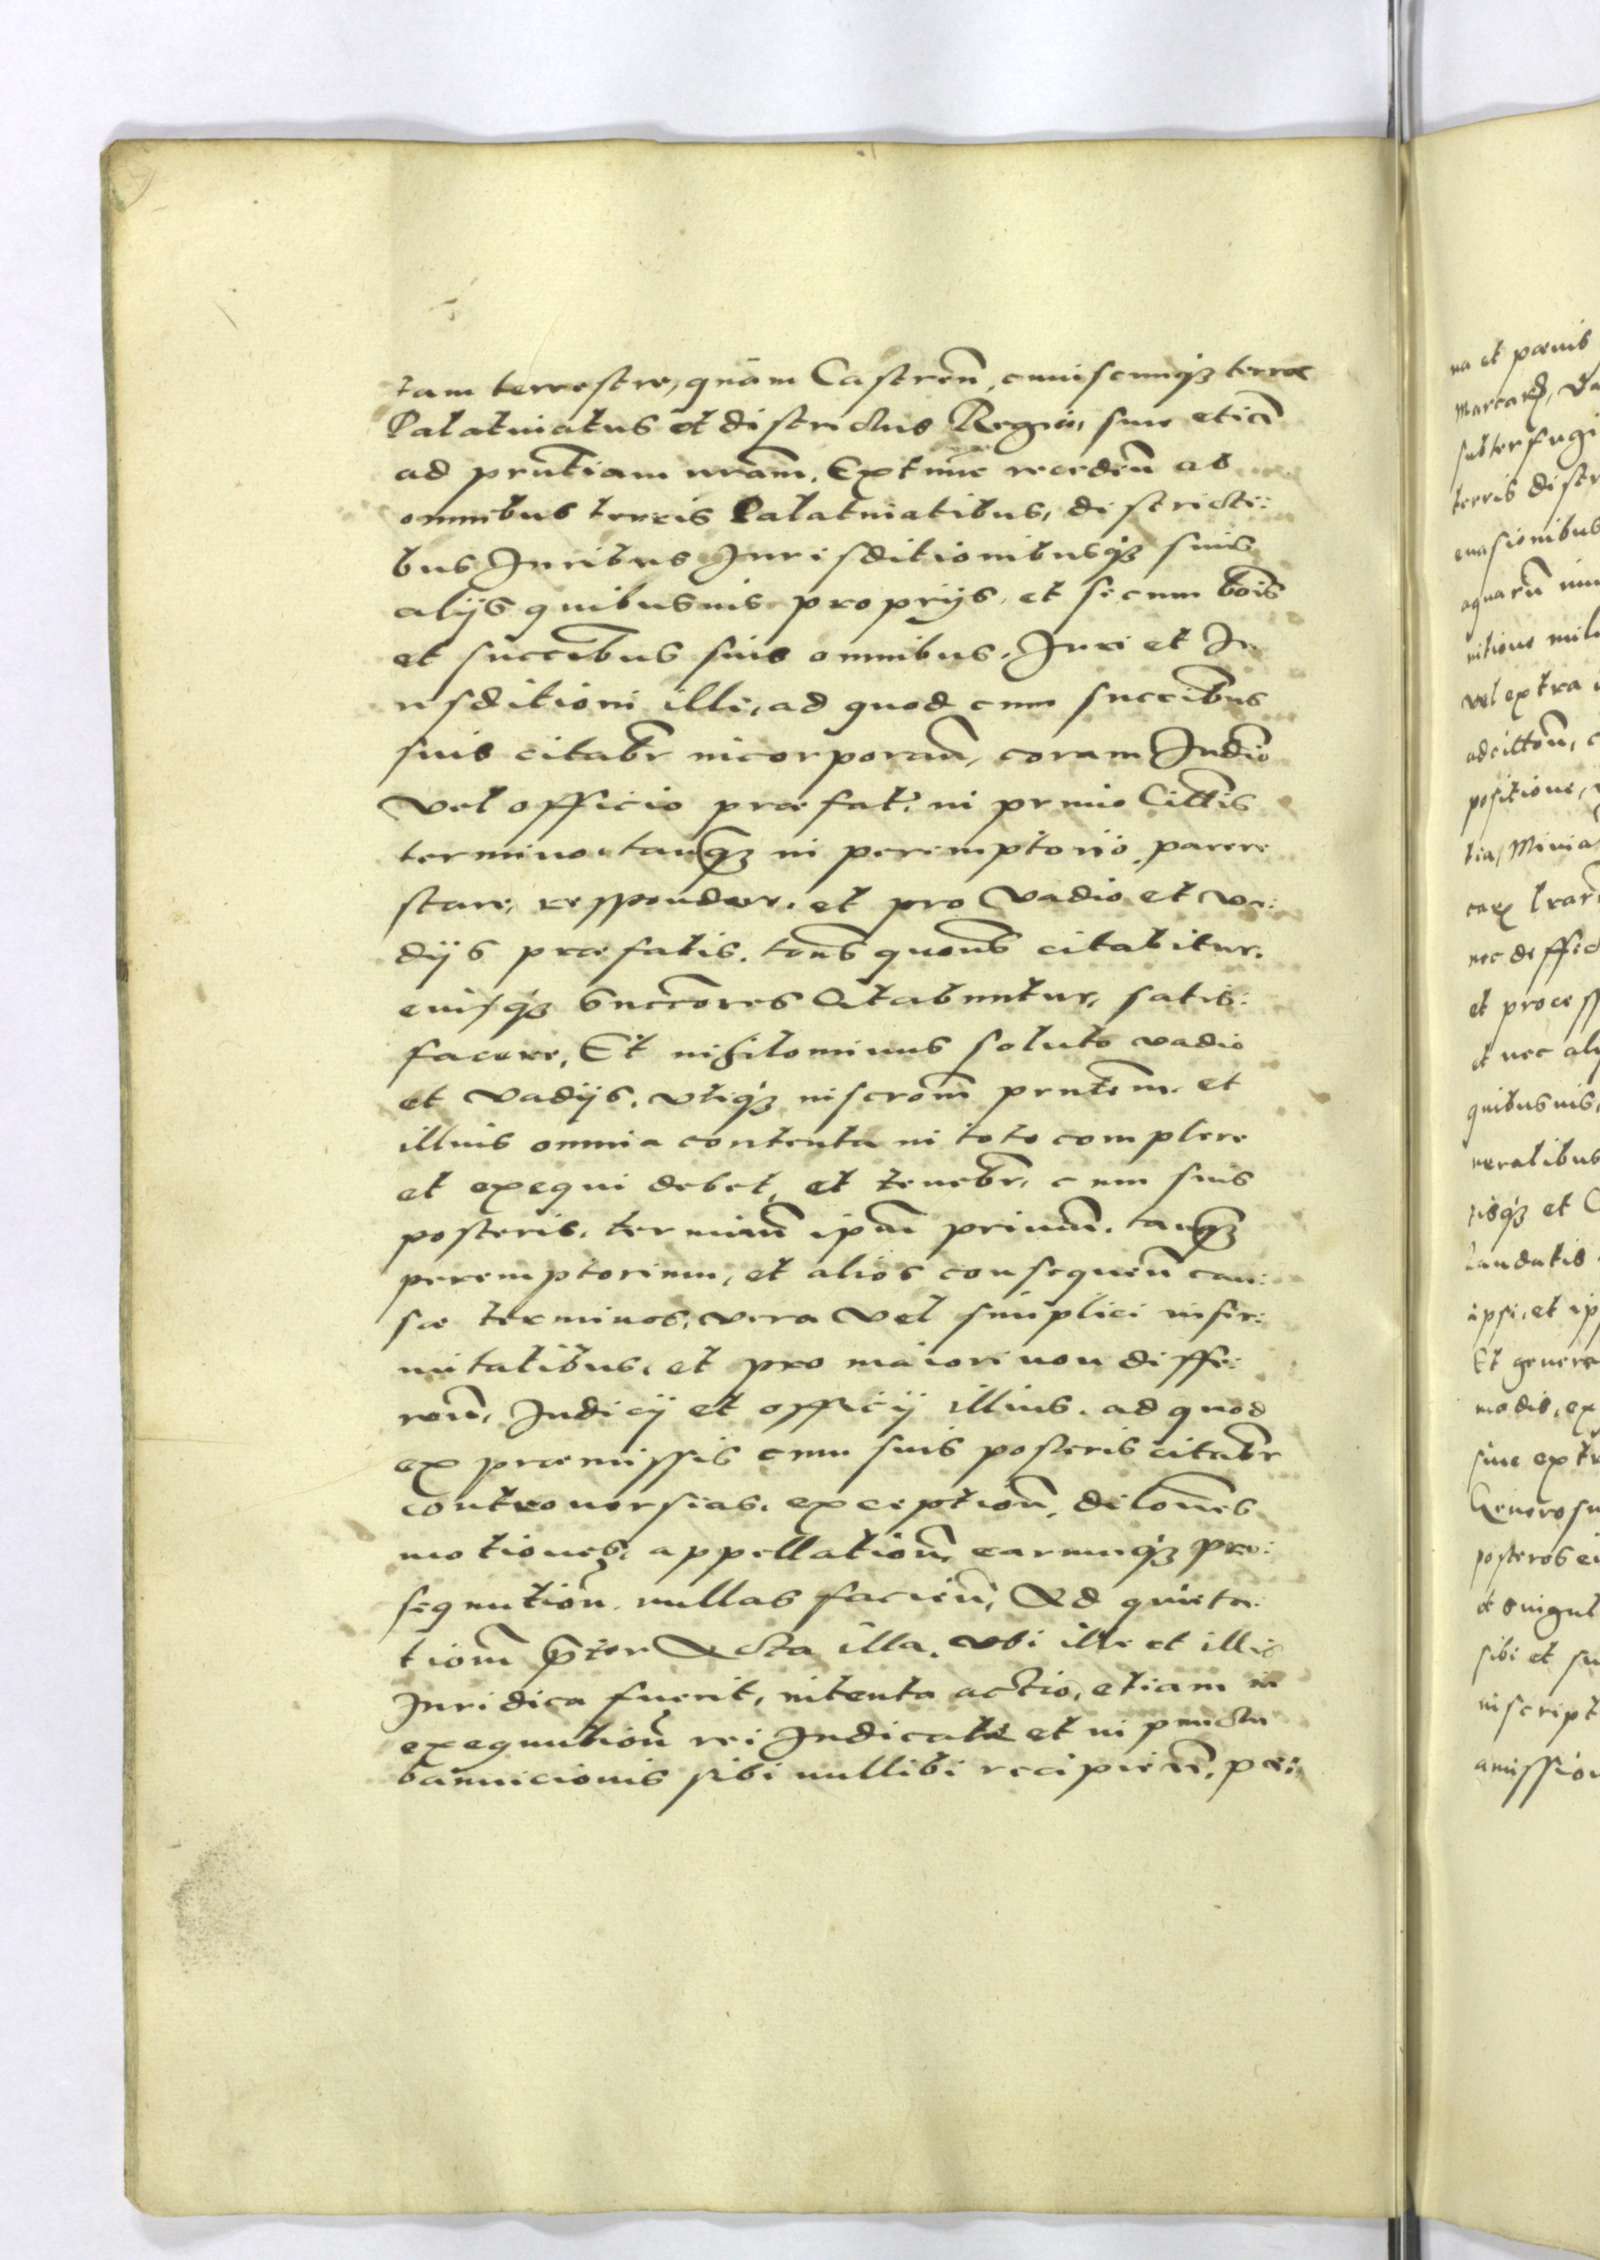 tam terrestre, quàm Castren̄, cuiuscunq₃ terrae
Palatinatus et districtus Regni, siue etiā
ad pn̄tiam nr̄am. Extunc recedeñ ab
omnibus terris Palatinatibus, districti:
bus Iuribus Iurisditionibusq₃ suis
alijs quibusuis proprijs, et secum bōis
et succībus suis omnibus, Iuri et Iu
risditioni illi, ad quod cum succībus
suis citabr̄ incorporan̄, coram Iudīo
vel officio praefat: in primo Citt̄is
termino, tanq₃ in peremptorio parere
stare, respondere, et pro vadio et va:
dijs praefatis, totīs quotīs citabitur,
eiusq₃ Succōres Citabuntur, satis:
facere, Et nihilominus soluto vadio
et vadijs, vtiq₃ inscrōm pn̄tem, et
illius omnia contenta in toto complere
et exequi debet, et tenebr̄, cum suis
posteris, terminū ip̄m primum, tanq₃
peremptorium, et alios consequeñ cau:
sae terminos, vera vel simplici infir:
mitatibus, et pro maiori non diffe:
reñ, Iudicij et officij illius, ad quod
ex praemissis cum suis posteris citabr̄
controuersias, exception̄, dilōnes
motiones, appellation̄, earumq₃ pro:
sequution̄ nullas facieñ, Ad quieta:
tiom̄ p̄ter Acta illa, vbi ille et illis
Iuridica fuerit, intenta actio, etiam in
exequution̄ rei Iudicatae et in puncto
bannicionis sibi nullibi recipieñ, poe:
na et poenis
subterfugi
terris distr
euasionibus
vel extra
positione,
et process
et nec ali
quibusuis,
neralibus
ipsi, et ip
Et genera
modis, ex
siue extr
Generosu
posteros ei
et singul
sibi et su
inscript
amission